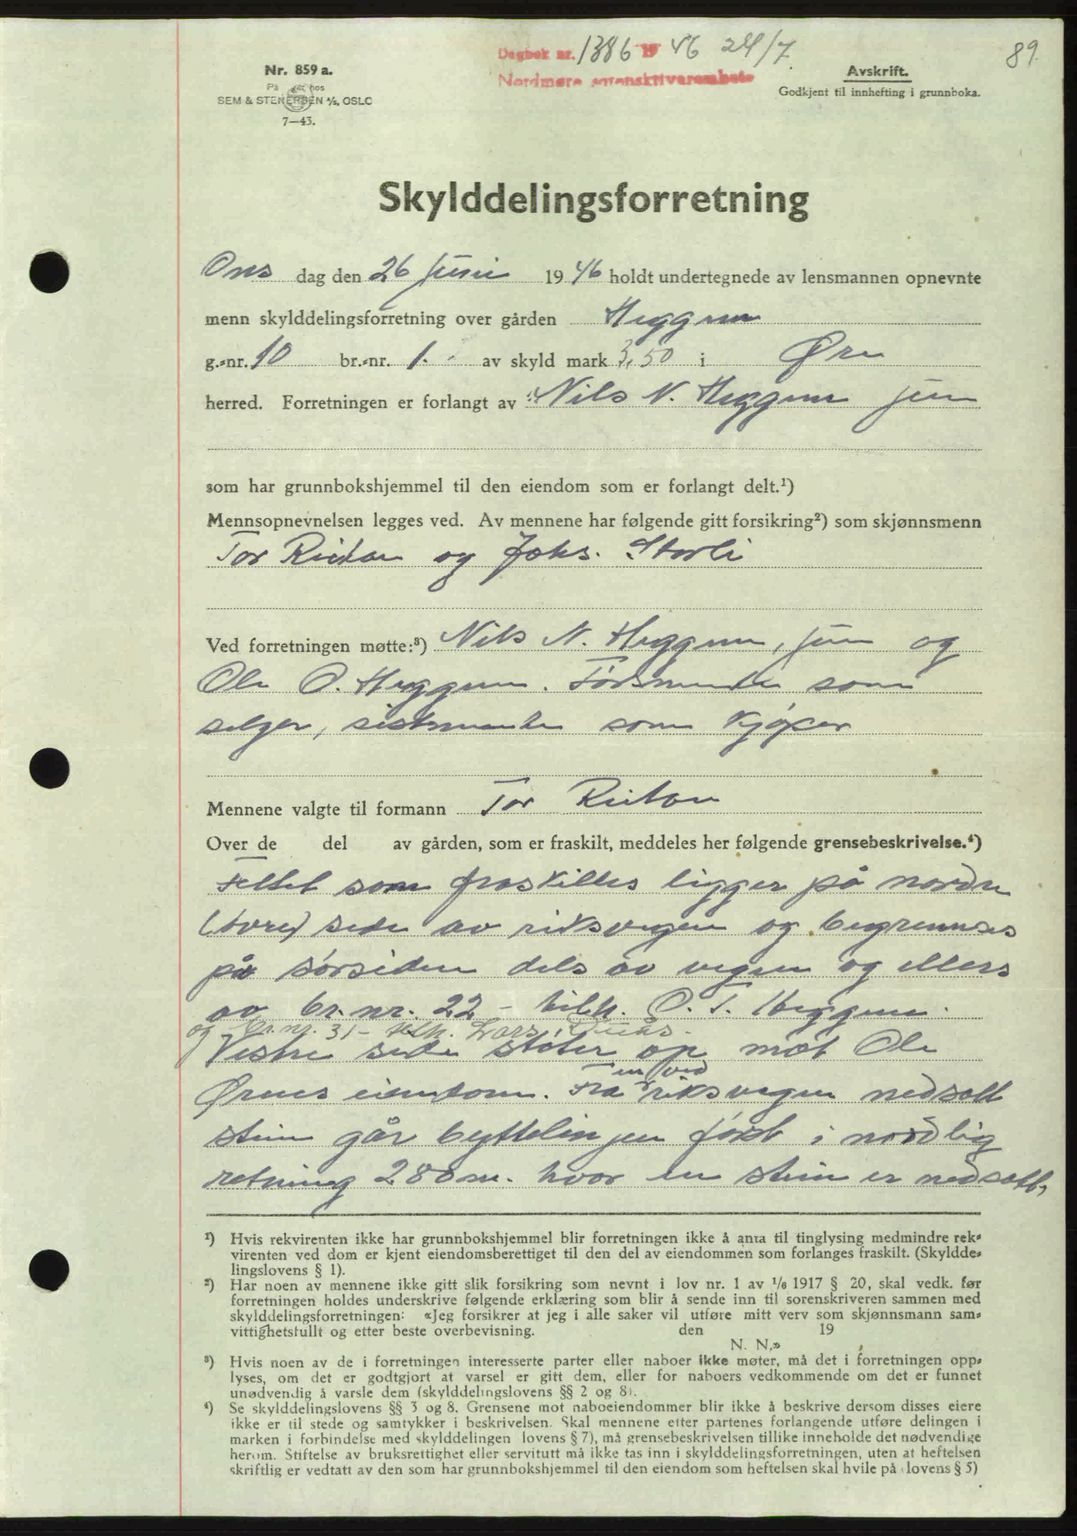 Dagbok nr. 1386 19 46 24/7
Nordmøre sorenskriverembete
89.
Nr. 859 a.
På hos
SEM & STENERSEN A/S, OSLO
7—43.
Avskrift.
Godkjent til innhefting i grunnboka.
Skylddelingsforretning
Ons dag den 26 juni 19 46 holdt undertegnede av lensmannen opnevnte
menn skylddelingsforretning over gården Heggem
g.-nr. 10 br.-nr. 1. av skyld mark 3,50 i Øre
herred. Forretningen er forlangt av Nils N. Heggem jun
som har grunnbokshjemmel til den eiendom som er forlangt delt.¹)
Mennsopnevnelsen legges ved. Av mennene har følgende gitt forsikring²) som skjønnsmenn
Tor og Johs. Storli
Ved forretningen møtte:³) Nils N. Heggem, jun og
Ole O. Heggem. Førstnevnte som
selger, sistnevnte som kjøper
Mennene valgte til formann Tor
Over de del av gården, som er fraskilt, meddeles her følgende grensebeskrivelse.⁴)
Feltet som fraskilles ligger på nordre
(øvre) side av riksvegen og begrenses
på sørsiden dels av vegen og ellers
av br. nr. 22 – tilh. O. T. Heggem.
og br. nr. 31 – tilh. Lars
Vestre side støter op mot Ole
Ørnes eiendom. Fra en ved riksvegen nedsatt
stein går byttelinjen først i nordlig
retning 280 m. hvor en stein er nedsatt,
¹) Hvis rekvirenten ikke har grunnbokshjemmel blir forretningen ikke å anta til tinglysing medmindre rek-
virenten ved dom er kjent eiendomsberettiget til den del av eiendommen som forlanges fraskilt. (Skyldde-
lingslovens § 1).
²) Har noen av mennene ikke gitt slik forsikring som nevnt i lov nr. 1 av 1/6 1917 § 20, skal vedk. før
forretningen holdes underskrive følgende erklæring som blir å sende inn til sorenskriveren sammen med
skylddelingsforretningen: «Jeg forsikrer at jeg i alle saker vil utføre mitt verv som skjønnsmann sam-
vittighetsfullt og etter beste overbevisning. den 19
N. N.»
³) Hvis noen av de i forretningen interesserte parter eller naboer ikke møter, må det i forretningen opp-
lyses, om det er godtgjort at varsel er gitt dem, eller for naboers vedkommende om det er funnet
unødvendig å varsle dem (skylddelingslovens §§ 2 og 8).
⁴) Se skylddelingslovens §§ 3 og 8. Grensene mot naboeiendommer blir ikke å beskrive dersom disses eiere
ikke er til stede og samtykker i beskrivelsen. Skal mennene etter partenes forlangende utføre delingen i
marken i forbindelse med skylddelingen lovens § 7), må grensebeskrivelsen tillike inneholde det nødvendige
herom. Stiftelse av bruksrettighet eller servitutt må ikke tas inn i skylddelingsforretningen, uten at heftelsen
skriftlig er vedtatt av den som har grunnbokshjemmel til den eiendom som heftelsen skal hvile på (lovens § 5)